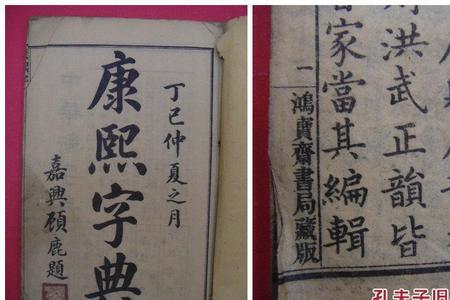 丁巳仲夏之月
康熙字典
嘉興顾鹿題
洪武正韻皆
家當其編輯
一
鴻寶齋書局藏版
孔夫子旧